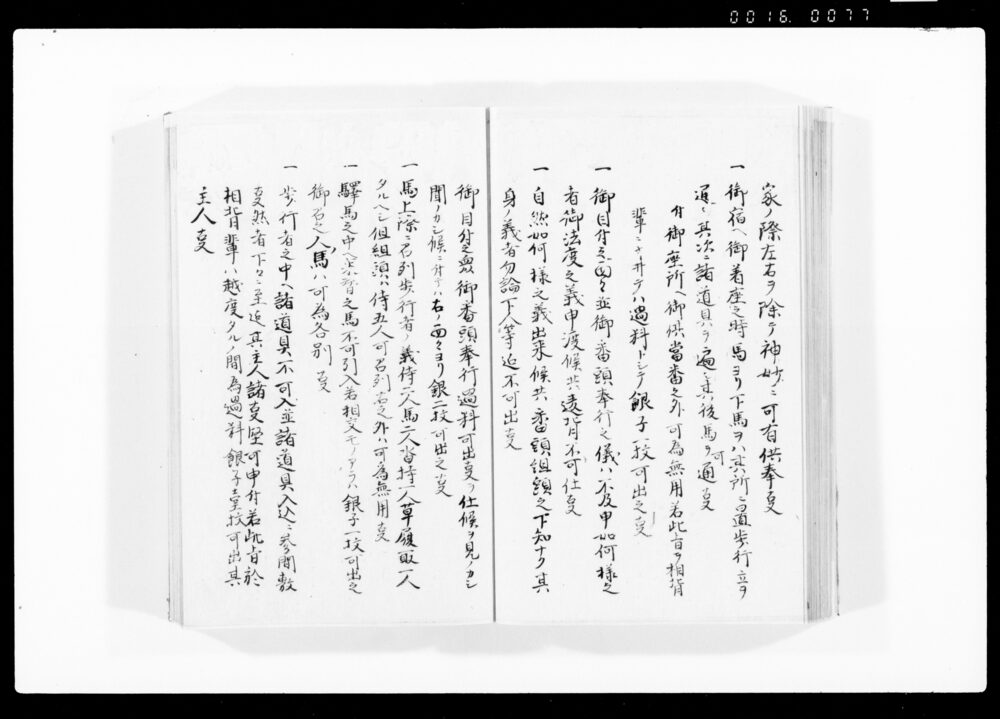 0016. 0077
家ノ際左右ヲ除テ神妙ニ可有供奉事
一 御宿ヘ御着座之時馬ヨリ下馬ヲハ其所ニ置歩行立ヲ
進メ其次ニ諸道具ヲ遍シ其後馬ヲ可通事
付御座所ヘ御供当番之外可為無用若此旨ヲ相背
輩ニヲ井テハ過料トシテ銀子一枚可出之事
一 御目付之面々並御番頭奉行之儀ハ不及申如何様之
者御法度之義申渡候共違背不可仕事
一 自然如何様之義出来候共番頭組頭之下知ナク其
身ノ義者勿論下人等迄不可出事
御目付之衆御番頭奉行過料可出事ヲ仕候ヲ見ノカシ
聞ノカシ候ニ付テハ右ノ面々ヨリ銀二枚可出之事
一 馬上際ニ召列歩行者ノ義侍二人馬二人沓持一人草履取一人
タルヘシ但組頭ハ侍五人可召列右之外ハ可為無用事
一 驛馬之中ヘ之馬不可引入若相交モノアラハ銀子一枚可出之
御召之人馬ハ可為各別事
一 歩行者之中ヘ諸道具不可入並諸道具入込ニ参間敷
事然者下々ニ至迄其主人諸事堅可申付若此旨於
相背輩ハ越度タルノ間為過料銀子壹枚可出其
主人事